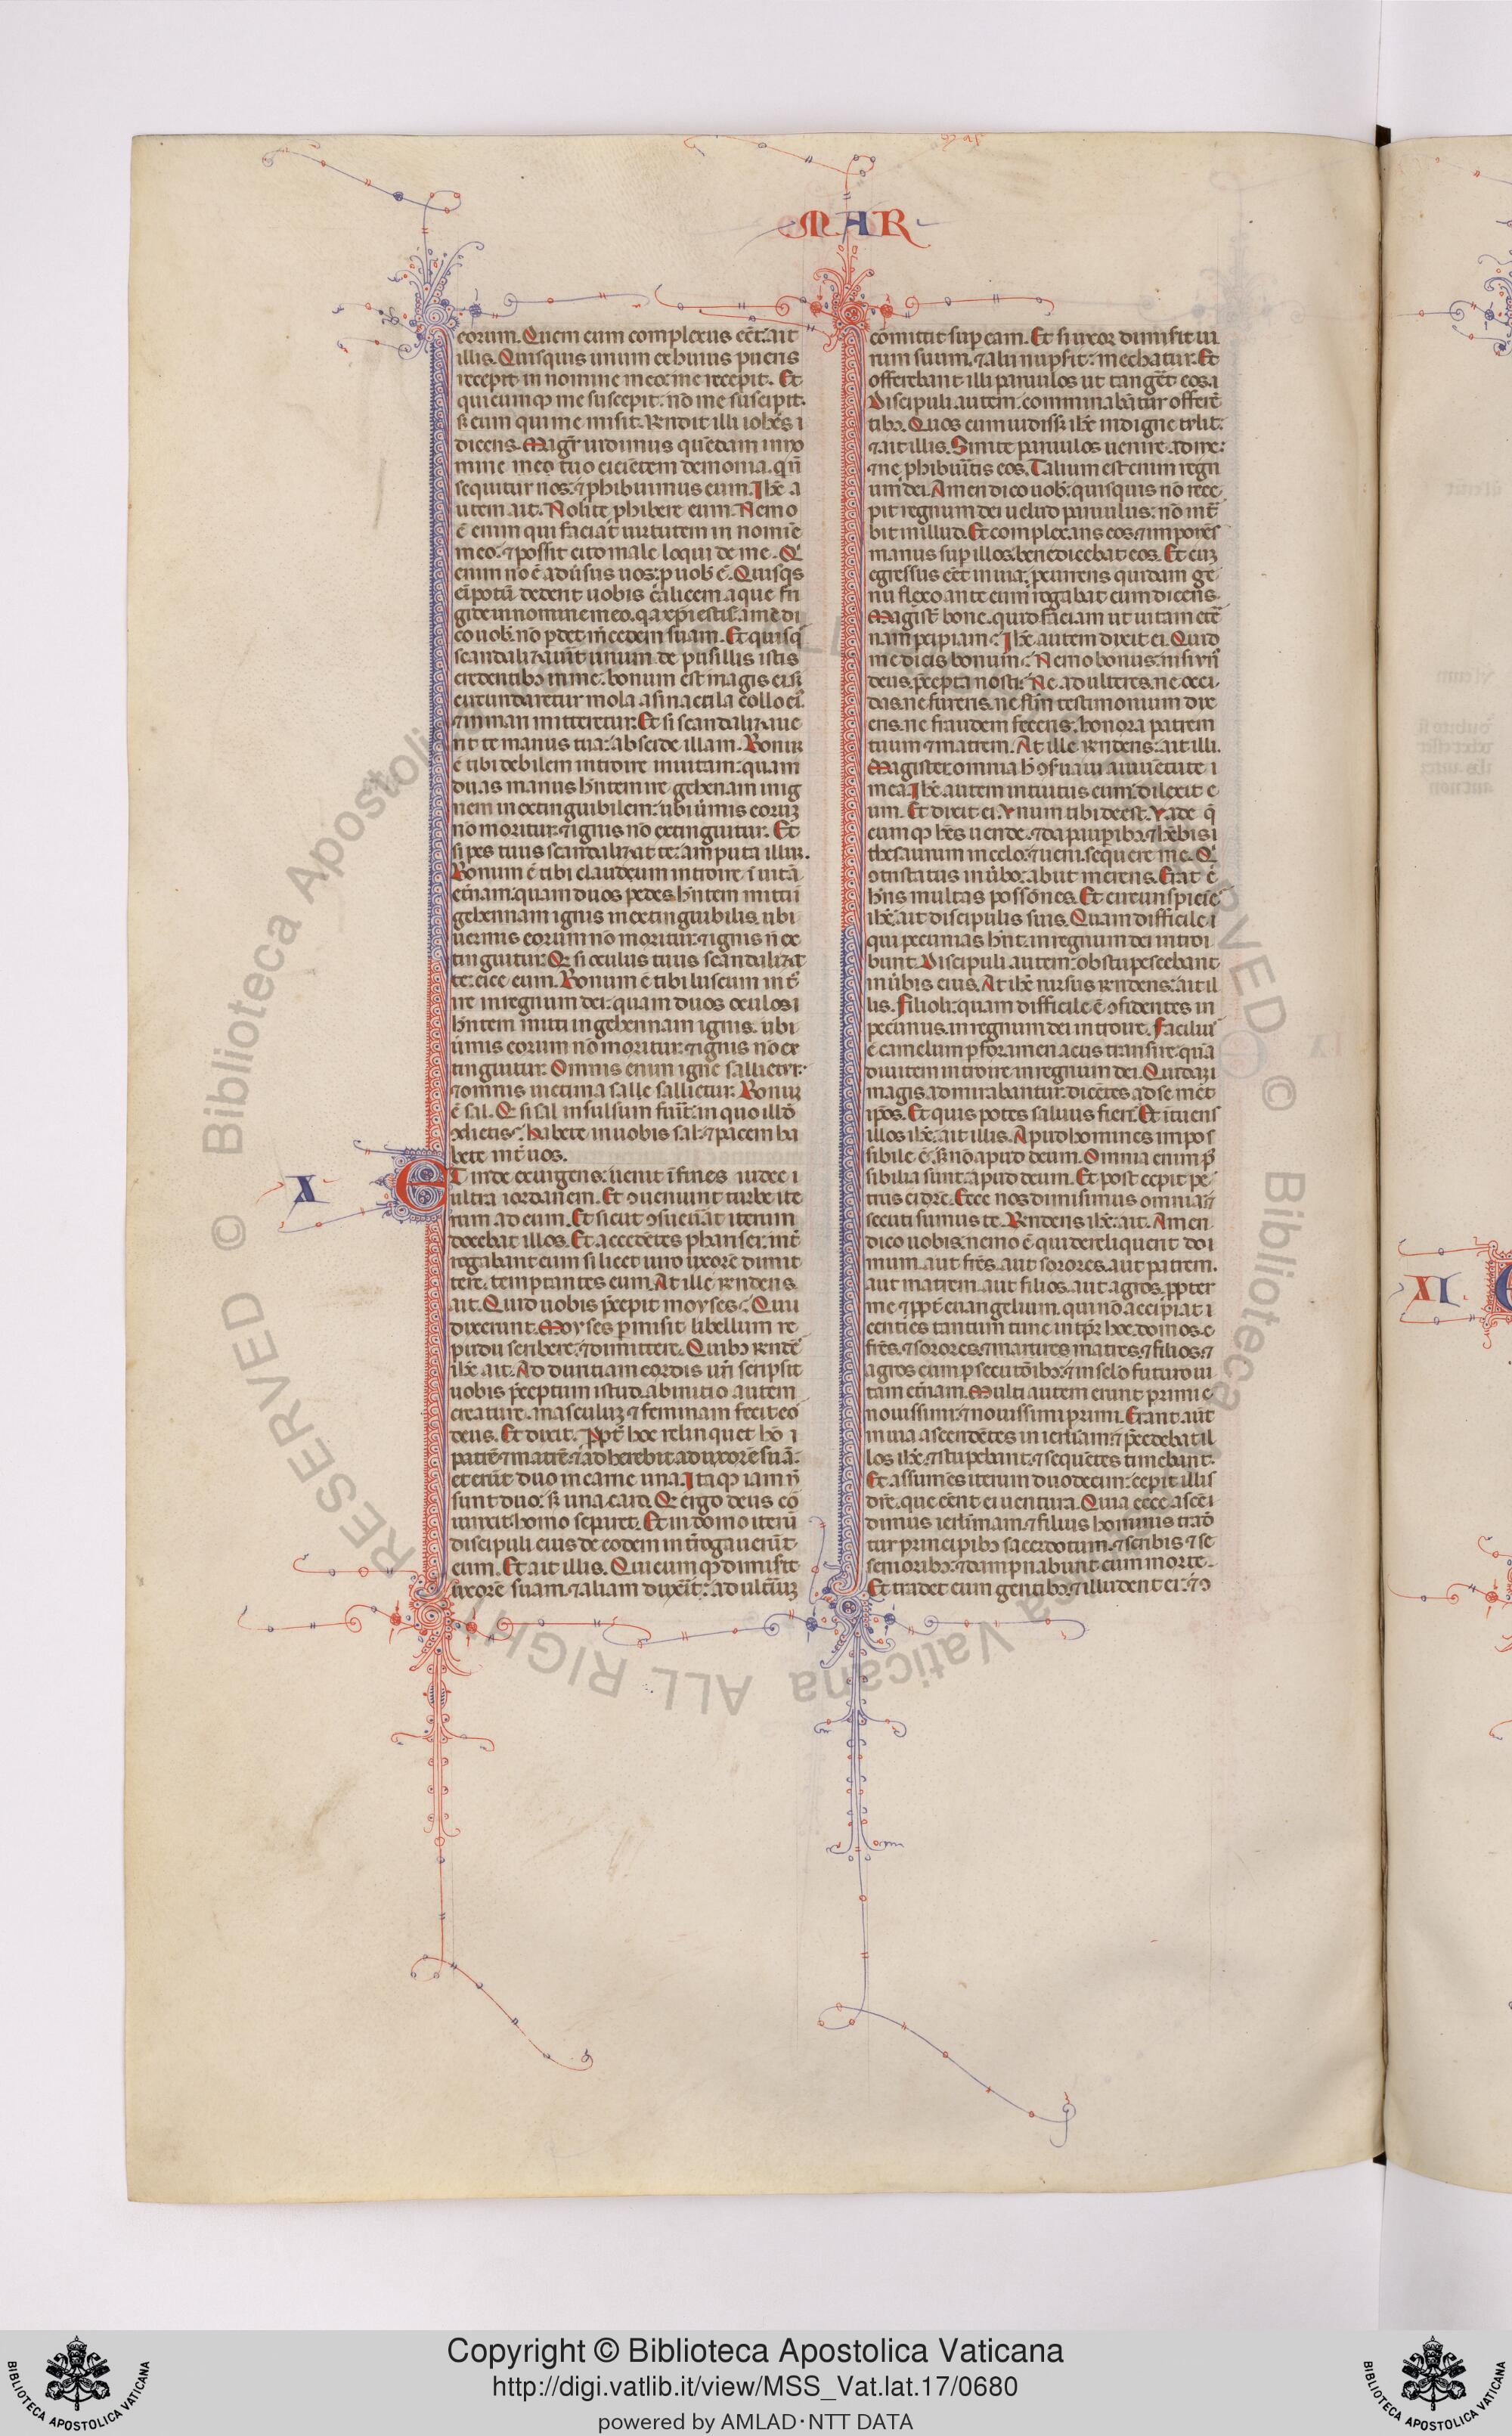 MAR
eorum. Quem cum complexus eēt: ait
illis. Quisquis unum ex huius pueris
receperit in nomine meo: me recepit. Et
quicumqȝ me susceperit: nō me suscipit.
sȝ eum qui me misit. Rendit illi iohēs
dicens. Magr̄ uidimus quēdam in no
mine meo tuo eiciētem demonia. qui n̄
sequitur nos: ⁊ phibuimus eum. Ihē a
utem ait. Nolite phibere eum. Nemo
ē enim qui faciat uirtutem in nomīe
meo: ⁊ possit cito male loqui de me. Qͥ
enim nō ē aduͥsus uos: p uob ē. Quisqs
eī potū dederit uobis calicem aque fri
gide in nomine meo. qa xp̄i estis: amē di
co uob. nō pdet mcedem suam. Et quisqͥ
scandalizauit̄ unum de pusillis istis
credentibȝ in me: bonum est magis ei si
circundaretur mola asinaria collo eiͥ.
⁊ in mari mitteretur. Et si scandalizaue
rit te manus tua: abscide illam. Bonuȝ
ē tibi debilem introire in uitam: quam
duas manus hn̄tem ire gehenam in ig
nem inextinguibilem: ubi uͥmis eoruȝ
nō moritur: ⁊ ignis nō extinguitur. Et
si pes tuus scandalizat te: amputa illuȝ.
Bonum ē tibi claudum introire ī uitā
etn̄am: quam duos pedes hn̄tem mitti ī
gehennam ignis inextinguibilis. ubi
uermis eorum nō moritur: ⁊ ignis n̄ ex
tinguitur. Qͥ si oculus tuus scandalizat
te: eice eum. Bonum ē tibi luscum int̄
ire in regnum dei: quam duos oculos
hn̄tem mitti in gehennam ignis. ubi
uͥmis eorum nō moritur: ⁊ ignis nō ex
tinguitur. Omnis enim igne sallietur:
⁊ omnis uictima salle sallietur. Bonuȝ
ē sal. Qͥ si sal insulsum fuit̄: in quo illō
ↄdietis? Habete in uobis sal: ⁊ pacem ha
bete int̄ uos.
X
ET inde exurgens: uenit ī fines iudee
ultra iordanem. Et ↄueniunt turbe ite
rum ad eum. Et sicut ↄsueuāt iterum
docebat illos. Et accedētes pharisei: int̄
rogabant eum si licet uiro uxorē dimit
tere. temptantes eum. At ille rendens
ait. Quid uobis p̄cepit moyses? Qui
dixerunt. Moyses pmisit libellum re
pudii scribere: ⁊ dimittere. Quibȝ rendēs
ihē ait. Ad duritiam cordis uri scripsit
uobis p̄ceptum istud. ab initio autem
creature. masculuȝ ⁊ feminam fecit eō
deus. Et dixit. Ppt̄ hoc relinquet hō
patrē ⁊ matrē: ⁊ adherebit ad uxorē suā:
et erūt duo in carne una. Itaqȝ iam n̄
sunt duo: sȝ una caro. Qͥ ergo deus cō
iunxit: homo n̄ separet. Et in domo iterū
discipuli eius de eodem int̄rogauerūt
eum. Et ait illis. Quicumqȝ dimiserit
uxorē suam. ⁊ aliam duxerit: adult̄iuȝ
comittit sup eam. Et si uxor dimiserit ui
rum suum. ⁊ alii nupserit: mechatur. Et
offerebant illi paruulos ut tangēt eos.
Discipuli autem. comminabātur offerē
tibȝ. Quos cum uidissȝ ihē indigne tulit:
⁊ ait illis. Sinite paruulos uenire ad me:
⁊ ne phibuitis eos. Talium est enim regn
um dei. Amen dico uob: quisquis nō rece
pit regnum dei uelud paruulus: nō int̄
bit in illud. Et complexans eos: ⁊ imponēs
manus sup illos: benedicebat eos. Et cuȝ
egressus eēt in uia: pcurrens quidam ge
nu flexo ante eum rogabat eum dicens.
Magist̄ bone. quid faciam ut uitam etē
nam pcipiam? Ihē autem dixit ei. Quid
me dicis bonum? Nemo bonus: nisi unͥ
deus. p̄cepta nosti: Ne adulteres. ne occi
das. ne fureris. ne flm̄ testimonium dix
eris. ne fraudem feceris. honora patrem
tuum ⁊ matrem. At ille rendens: ait illi.
Magister omnia h̄ ↄseruaui a iuuētute
mea. Ihē autem intuitus eum: dilexit e
um. Et dixit ei. Vnum tibi deest. Vade qͥ
cumqȝ hēs uende. ⁊ da paupibȝ: ⁊ hēbis
thesaurum in celo: ⁊ ueni. sequere me. Qͥ
ↄtristatus in uͥbo: abiit merens. Erat ē
hn̄s multas possōnes. Et circunspiciēs
ihē: ait discipulis suis. Quam difficile
qui pecunias hn̄t. in regnum dei introi
bunt. Discipuli autem: obstupescebant
in uͥbis eius. At ihē rursus rendens: ait il
lis. Filioli: quam difficile ē ↄfidentes in
pecuniis. in regnum dei introire. Faciliuͥ
ē camelum p foramen acus transire: quā
diuitem introire in regnum dei. Qui da
magis admirabantur: dicētes ad se mēt
ipos. Et quis potes saluus fieri? Et ītuens
illos ihē: ait illis. Apud homines impos
sibile ē: sȝ nō apud deum. Omnia enim pͦ
sibilia sunt: apud deum. Et post cepit pe
trus ei dre. Ecce nos dimisimus omnia: ⁊
secuti sumus te. Rendens ihē: ait. Amen
dico uobis: nemo ē qui dereliquerit do
mum. aut frēs. aut sorores. aut patrem.
aut matrem. aut filios. aut agros. ppter
me ⁊ ppt̄ euangelium. qui nō accipiat
centies tantum nunc in tpr̄ hoc. domos. ⁊
frēs. ⁊ sorores. ⁊ matres. ⁊ filios. ⁊
agros cum psecutōibȝ: ⁊ in sclo futuro ui
tam etn̄am. Multi autem erunt primi
nouissimi: ⁊ nouissimi primi. Erant aut̄
in uia ascendētes in ierlimam: ⁊ p̄cedebat il
los ihē. ⁊ stupebant: ⁊ sequētes timebant.
Et assumēs iterum duodecim: cepit illis
dr̄e. que eēnt ei uentura. Quia ecce ascē
dimus ierlimam. ⁊ filius hominis trad̄
tur principibȝ sacerdotum. ⁊ scribis ⁊ se
senioribȝ: ⁊ dampnabunt eum morte.
Et tradet eum gentibȝ: ⁊ illudent ei: ⁊ ↄ
XI.
Copyright © Biblioteca Apostolica Vaticana
http://digi.vatlib.it/view/MSS_Vat.lat.17/0680
powered by AMLAD·NTT DATA
BIBLIOTECA APOSTOLICA VATICANA
BIBLIOTECA APOSTOLICA VATICANA
© Biblioteca Apostolica Vaticana ALL RIGHTS RESERVED